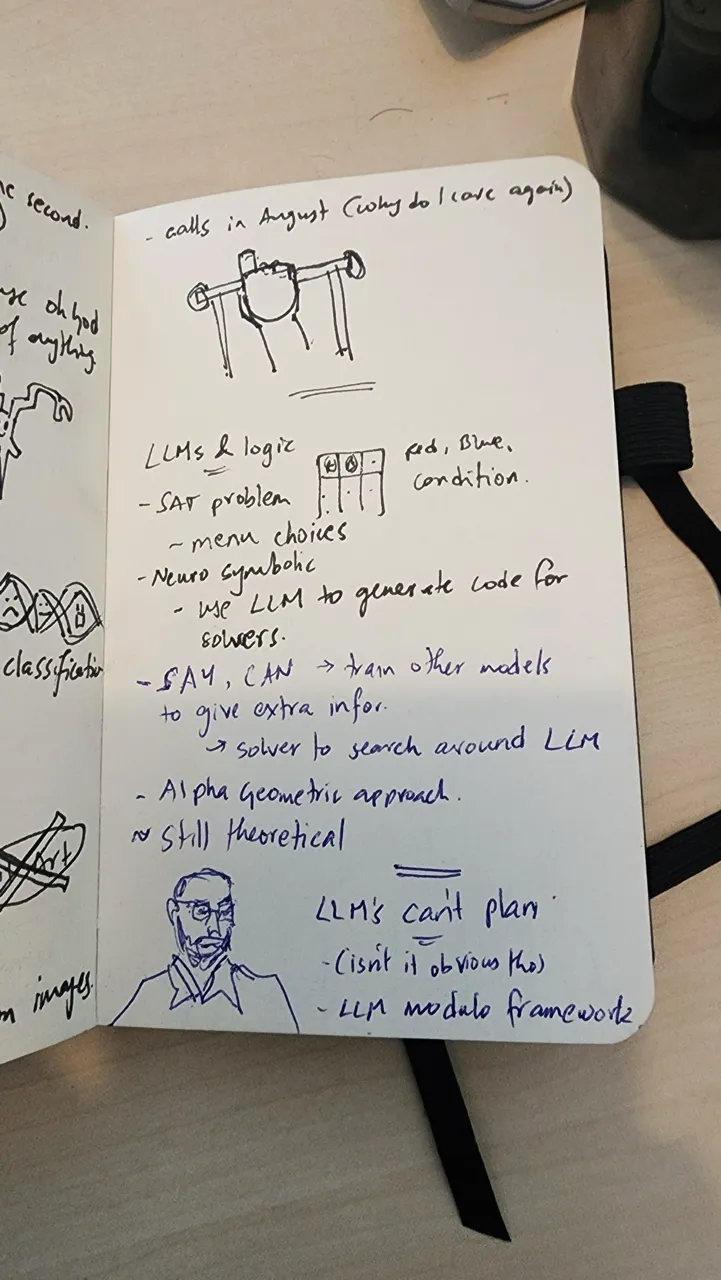 second.
oh god
of anything
classification
Art
images.
- calls in August (why do I care again)
LLMs & logic
Red, Blue,
condition.
- SAT problem
- menu choices
- Neuro symbolic
- use LLM to generate code for
solvers.
- SAY, CAN → train other models
to give extra infor.
→ solver to search around LLM
- Alpha Geometric approach.
~ Still theoretical
LLM's can't plan
- (isn't it obvious tho)
- LLM modulo framework